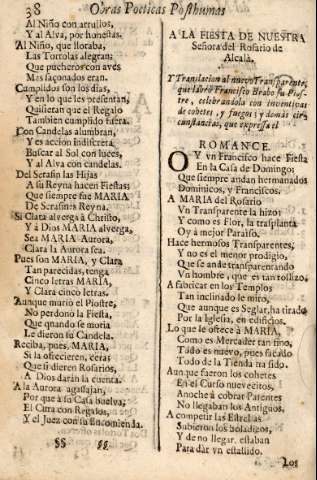 38 Obras Poeticas Posthumas
Al Niño con arrullos,
Y al Alva, por honestas.
Al Niño, que lloraba,
Las Tortolas alegran;
Que pucheros con aves
Mas saçonados eran.
Cumplidos son los dias,
Y en lo que les presentan,
Quisieran que el Regalo
Tambien cumplido fuera.
Con Candelas alumbran,
Y es accion indiscreta,
Buscar al Sol con luces,
Y al Alva con candelas.
Del Serafin las Hijas
A su Reyna hacen Fiestas;
Que siempre fue MARIA
De Serafines Reyna.
Si Clara alverga à Christo,
Y à Dios MARIA alverga,
Sea MARIA Aurora,
Clara la Aurora sea.
Pues son MARIA, y Clara
Tan parecidas, tenga
Cinco letras MARIA,
Y Clara cinco letras.
Aunque muriò el Piostre,
No perdonò la Fiesta,
Que quando se moria
Le dieron su Candela.
Reciba, pues, MARIA,
Si la ofrecieren, ceras
Que si dieren Rosarios,
A Dios daràn la cuenta.
A la Aurora agasajan,
Por que à su Casa buelva;
El Cura con Regalos,
Y el Juez con su Encomienda.
§§ §§
A LA FIESTA DE NUESTRA
Señora del Rosario de
Alcalà.
Y Translacion al nuevo Transparente,
que labrò Francisco Brabo su Piostre,
celebrandola con inventivas
de cohetes, y fuegos; y demàs circunstancias,
que expressa el
ROMANCE.
OY vn Francisco hace Fiesta
En la Casa de Domingo;
Que siempre andan hermanados
Dominicos, y Franciscos.
A MARIA del Rosario
Vn Transparente la hizo;
Y como es Flor, la trasplanta
Oy à mejor Paraiso.
Hace hermosos Transparentes,
Y no es el menor prodigio,
Que se ande transparentando
Vn hombre, que es tan rollizo.
A fabricar en los Templos
Tan inclinado le miro,
Que aunque es Seglar, ha tirado
Por la Iglesia, en edificios.
Lo que le ofrece à MARIA,
Como es Mercader tan fino,
Todo es nuevo, pues sacado
Todo de la Tienda ha sido.
Aun que fueron los cohetes
En el Curso nuevecitos,
Anoche à cobrar Patentes
No llegaban los Antiguos.
A competir las Estrellas
Subieron los boladigos;
Y de no llegar, estaban
Para dàr vn estallido.
Los